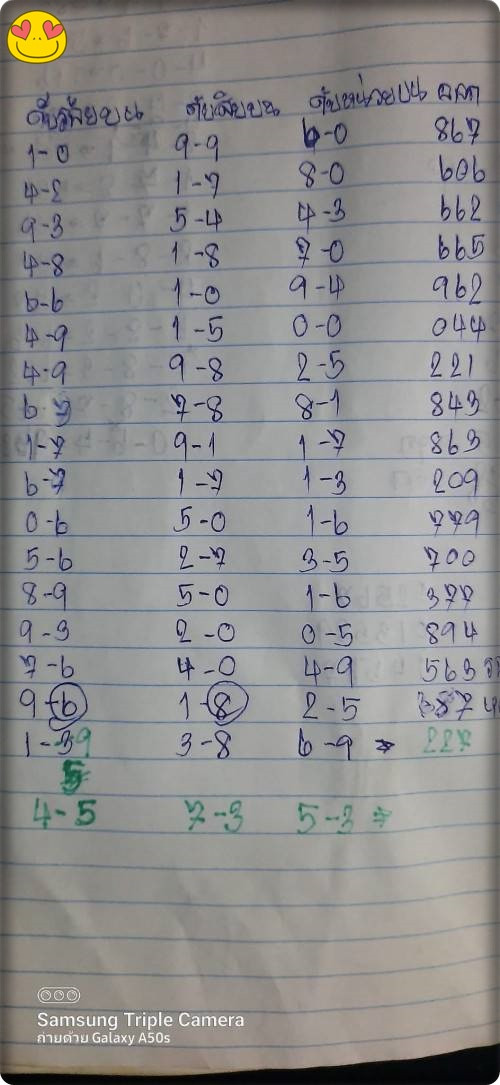 ดับร้อยบน ดับสิบบน ดับหน่วยบน ออก
1-0 9-9 6-0 867
4-8 1-7 8-0 606
9-3 5-4 4-3 662
4-8 1-8 7-0 665
6-6 1-0 9-4 962
4-9 1-5 0-0 044
4-9 9-8 2-5 221
6-7 7-8 8-1 843
1-7 9-1 1-7 863
6-7 1-7 1-3 209
0-6 5-0 1-6 779
5-6 2-7 3-5 700
8-9 5-0 1-6 377
9-3 2-0 0-5 894
7-6 4-0 4-9 563
9-6 1-8 2-5 387
1-39 3-8 6-9 227
5
4-5 7-3 5-3
Samsung Triple Camera
ถ่ายด้วย Galaxy A50s